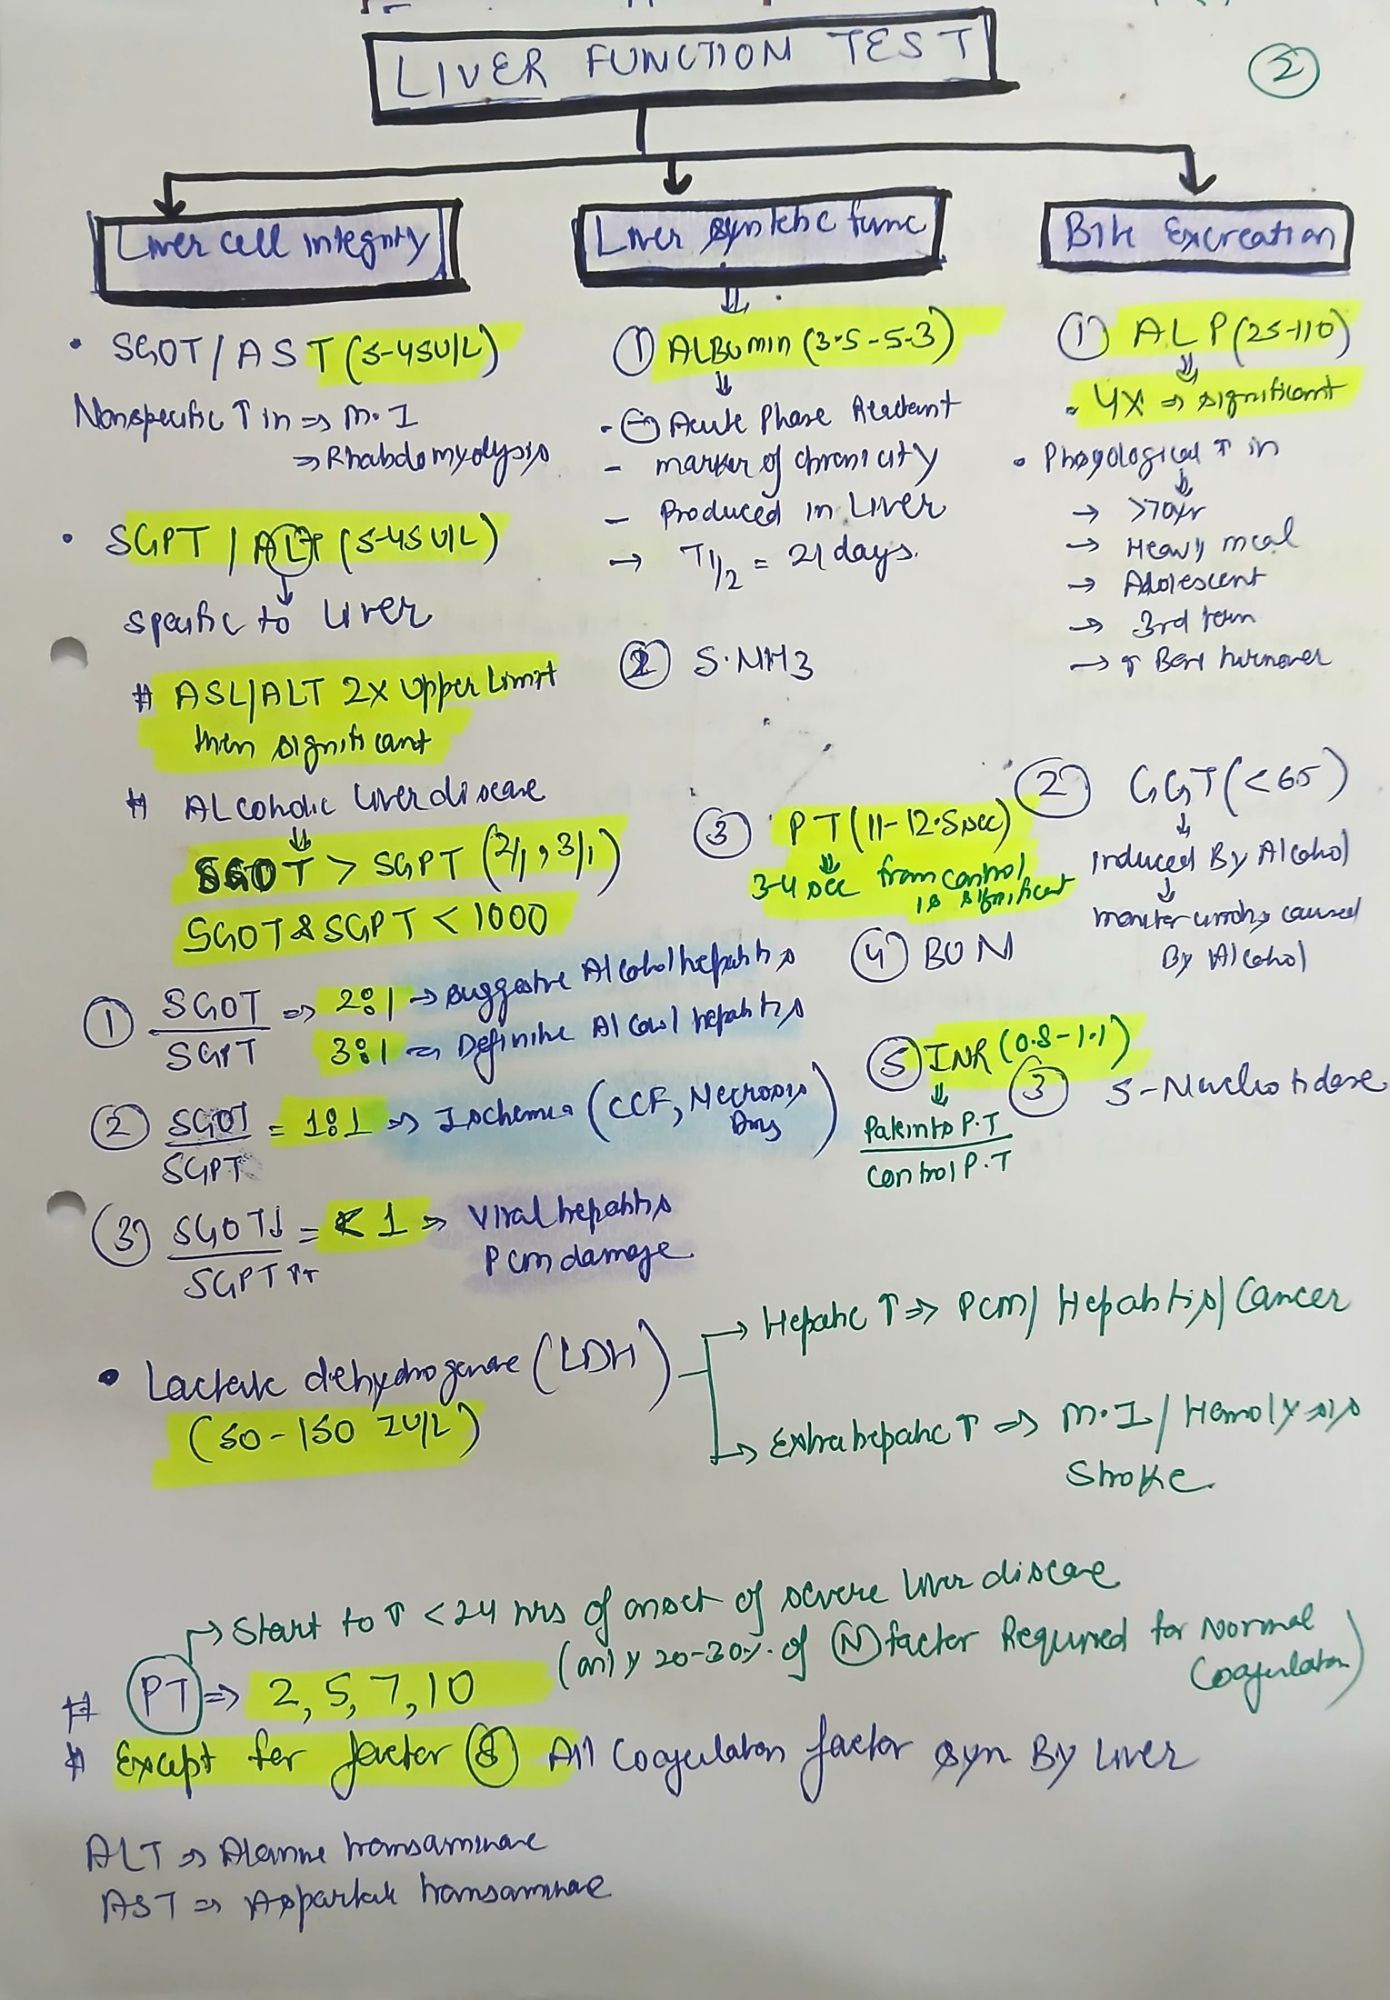 LIVER FUNCTION TEST
2
Liver cell integrity
• SGOT/AST (5-45U/L)
Nonspecific ↑ in ⇒ M.I
⇒ Rhabdomyolysis
• SGPT/ALT (5-45U/L)
↓
specific to liver
# ASL/ALT 2x upper Limit
then significant
# ALcoholic liver disease
⇓
SGOT > SGPT (2/1, 3/1)
SGOT & SGPT < 1000
① SGOT/SGPT ⇒ 2:1 → suggestive Alcohol hepatitis
3:1 ⇒ Definitive Alcohol hepatitis
② SGOT/SGPT = 1:1 ⇒ Ischemia (CCF, Necrosis,
③ SGOT↓/SGPT↑↑ = < 1 ⇒ Viral hepatitis
Pcm damage
Liver synthetic func
⇓
① ALBumin (3.5-5.3)
⇓
- ⊖ Acute Phase Reactant
- marker of chronicity
- Produced in Liver
→ T1/2 = 21 days.
② S.NH3
③ PT (11-12.5 sec)
⇓
3-4 sec from control
is significant
④ BUN
⑤ INR (0.8-1.1)
⇓
Patients P.T
Control P.T
Bile Excreation
① ALP (25-110)
⇓
• 4X ⇒ significant
• Phsyological ↑ in
⇓
→ >70yr
→ Heavy meal
→ Adolescent
→ 3rd term
→ ↑ Bone turnover
② GGT (<65)
↓
induced By Alcohol
↓
caused
By Alcohol
③ 5-Nucleotidase
• Lactate dehydrogenase (LDH)
(50-150 IU/L)
→ Hepatic ↑ ⇒ PCM/Hepatitis/Cancer
→ Extrahepatic ↑ ⇒ M.I/Hemolysis
Stroke.
→ Start to ↑ <24 hrs of onset of severe liver disease
(only 20-30% of Ⓝ factor Required for Normal
Coagulation)
# PT ⇒ 2, 5, 7, 10
# Except for factor ⑧ All Coagulation factor syn By Liver
ALT ⇒ Alanine transaminase
AST ⇒ Aspartate transaminase